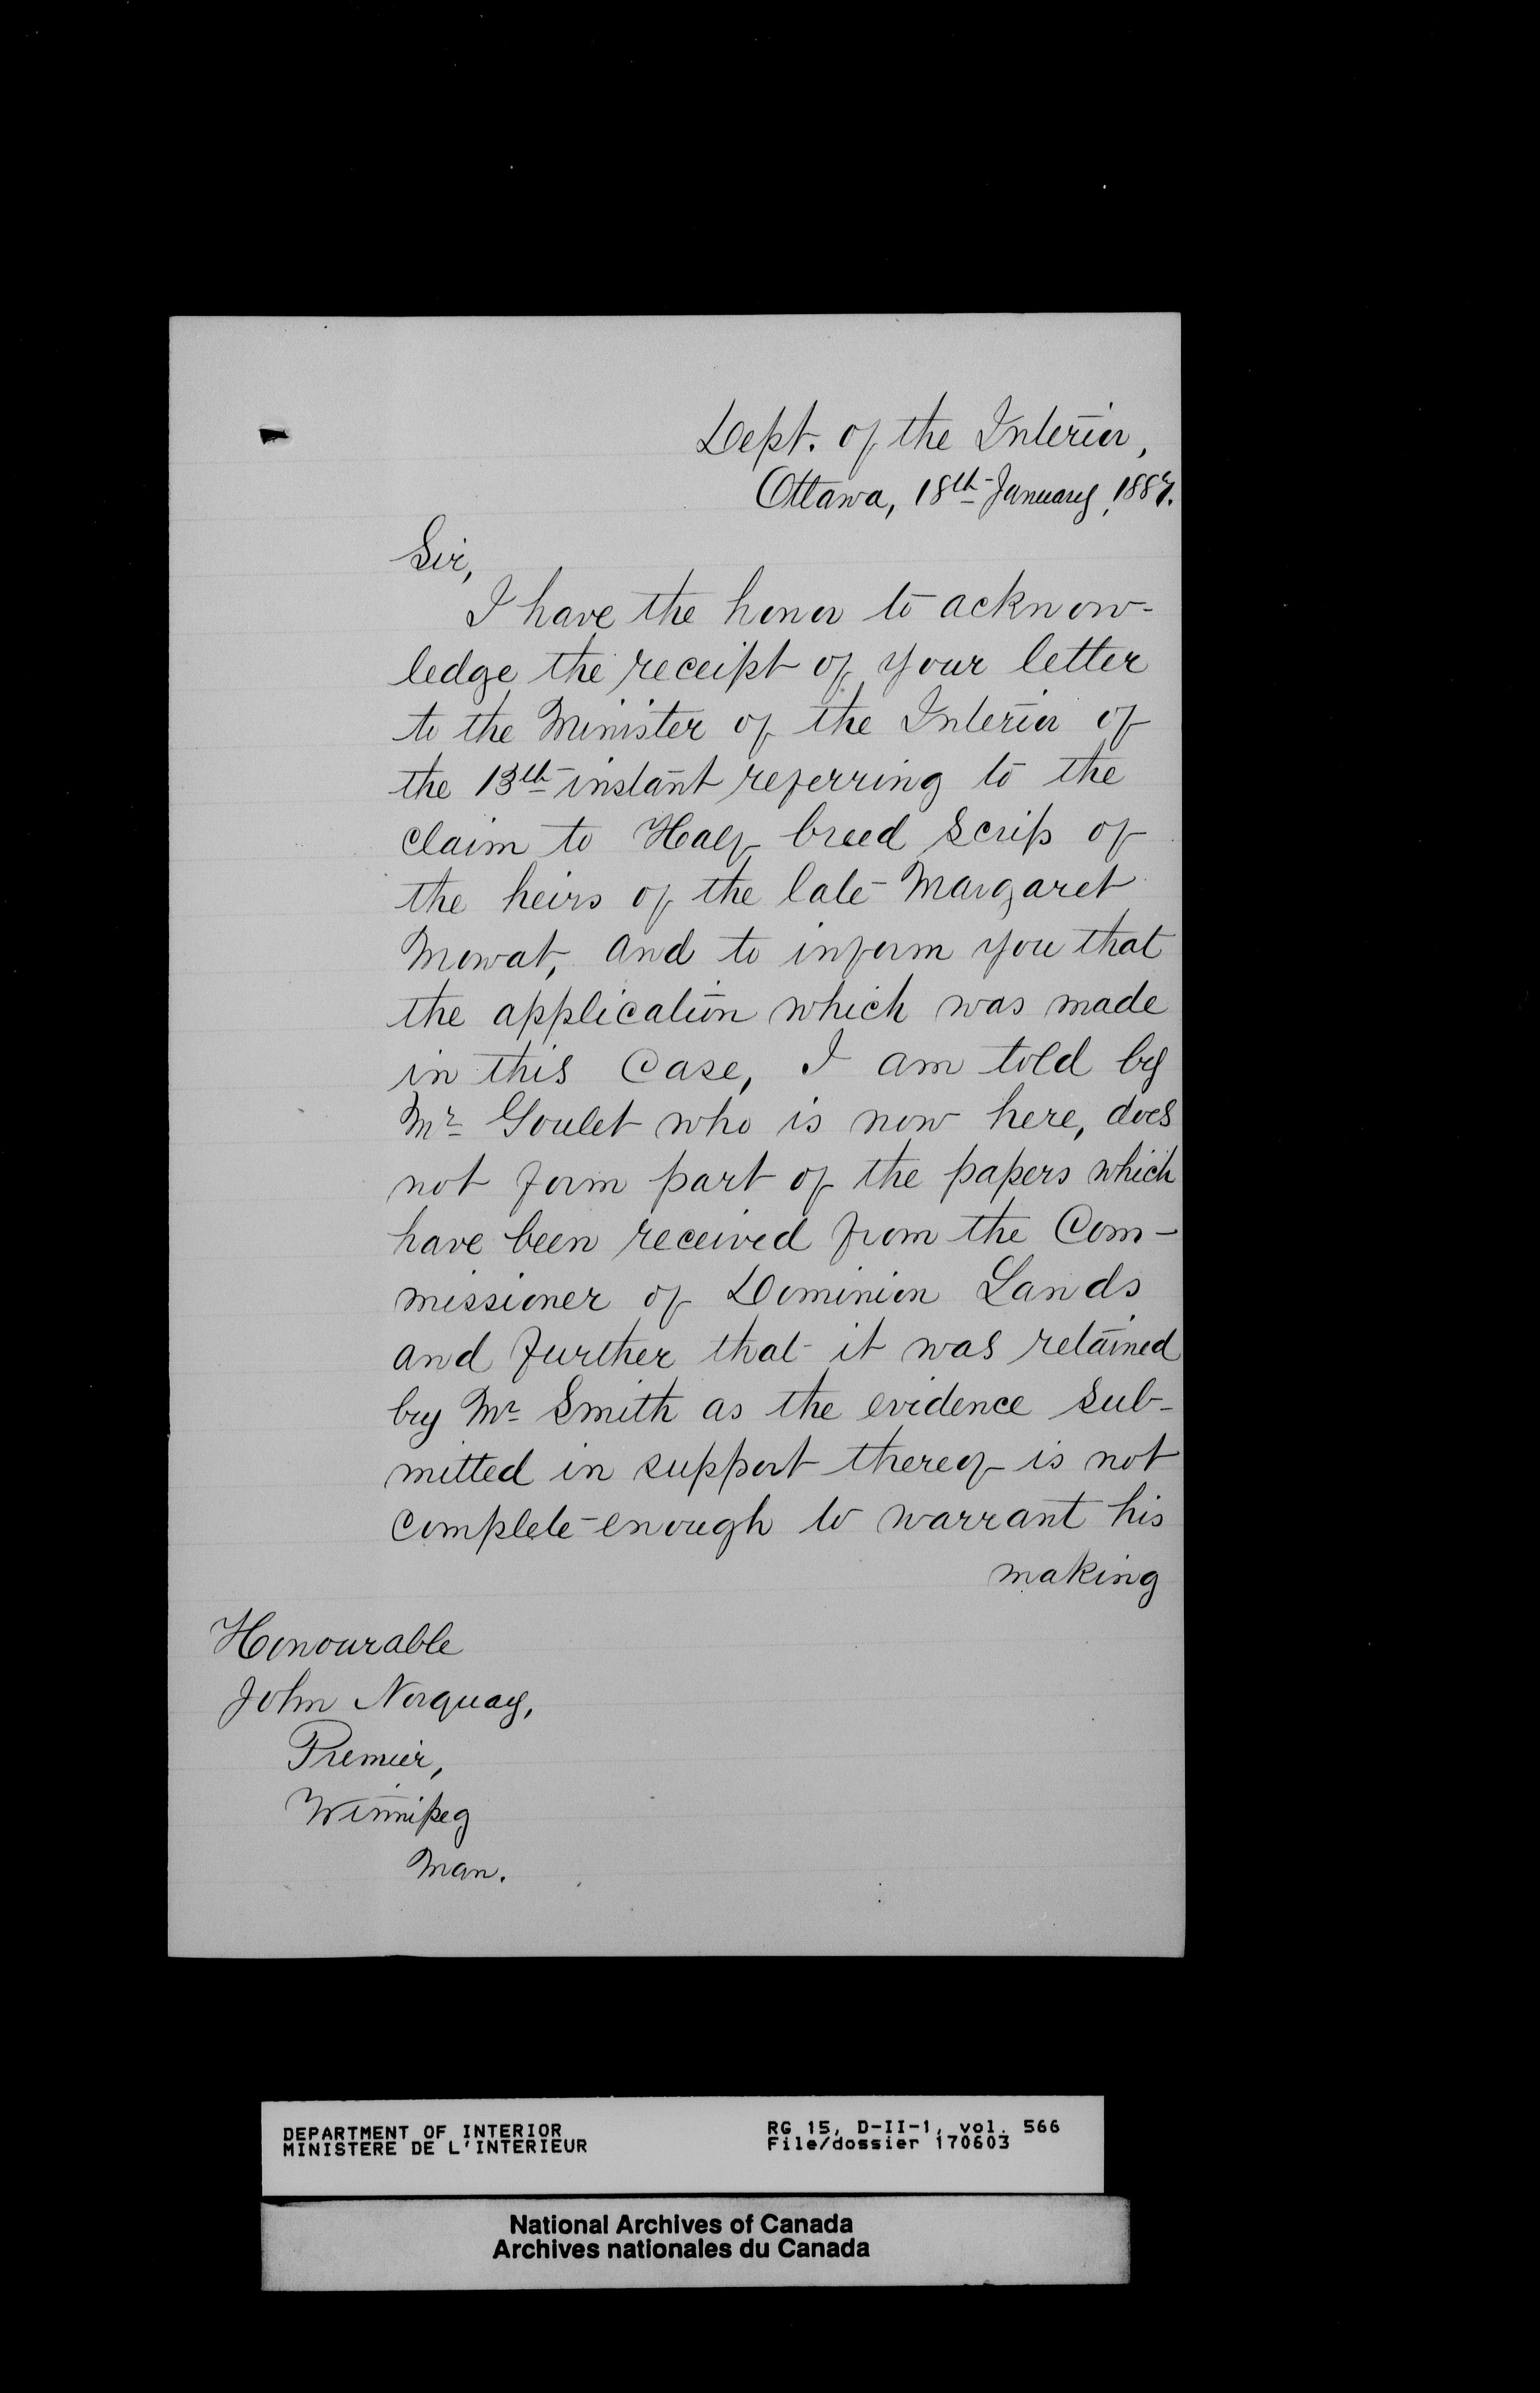 Dept. of the Interior,
Ottawa, 18th January, 1887.
Sir,
I have the honor to acknow-
ledge the receipt of your letter
to the Minister of the Interior of
the 13th instant referring to the
claim to Half breed Scrip of
the heirs of the late Margaret
Mowat, and to inform you that
the application which was made
in this case, I am told by
Mr Goulet who is now here, does
not form part of the papers which
have been received from the Com-
missioner of Dominion Lands
and further that it was retained
by Mr Smith as the evidence sub-
mitted in support thereof is not
complete enough to warrant his
making
Honourable
John Norquay,
Premier,
Winnipeg
Man.
DEPARTMENT OF INTERIOR
MINISTERE DE L'INTERIEUR
RG 15, D-II-1, vol. 566
File/dossier 170603
National Archives of Canada
Archives nationales du Canada